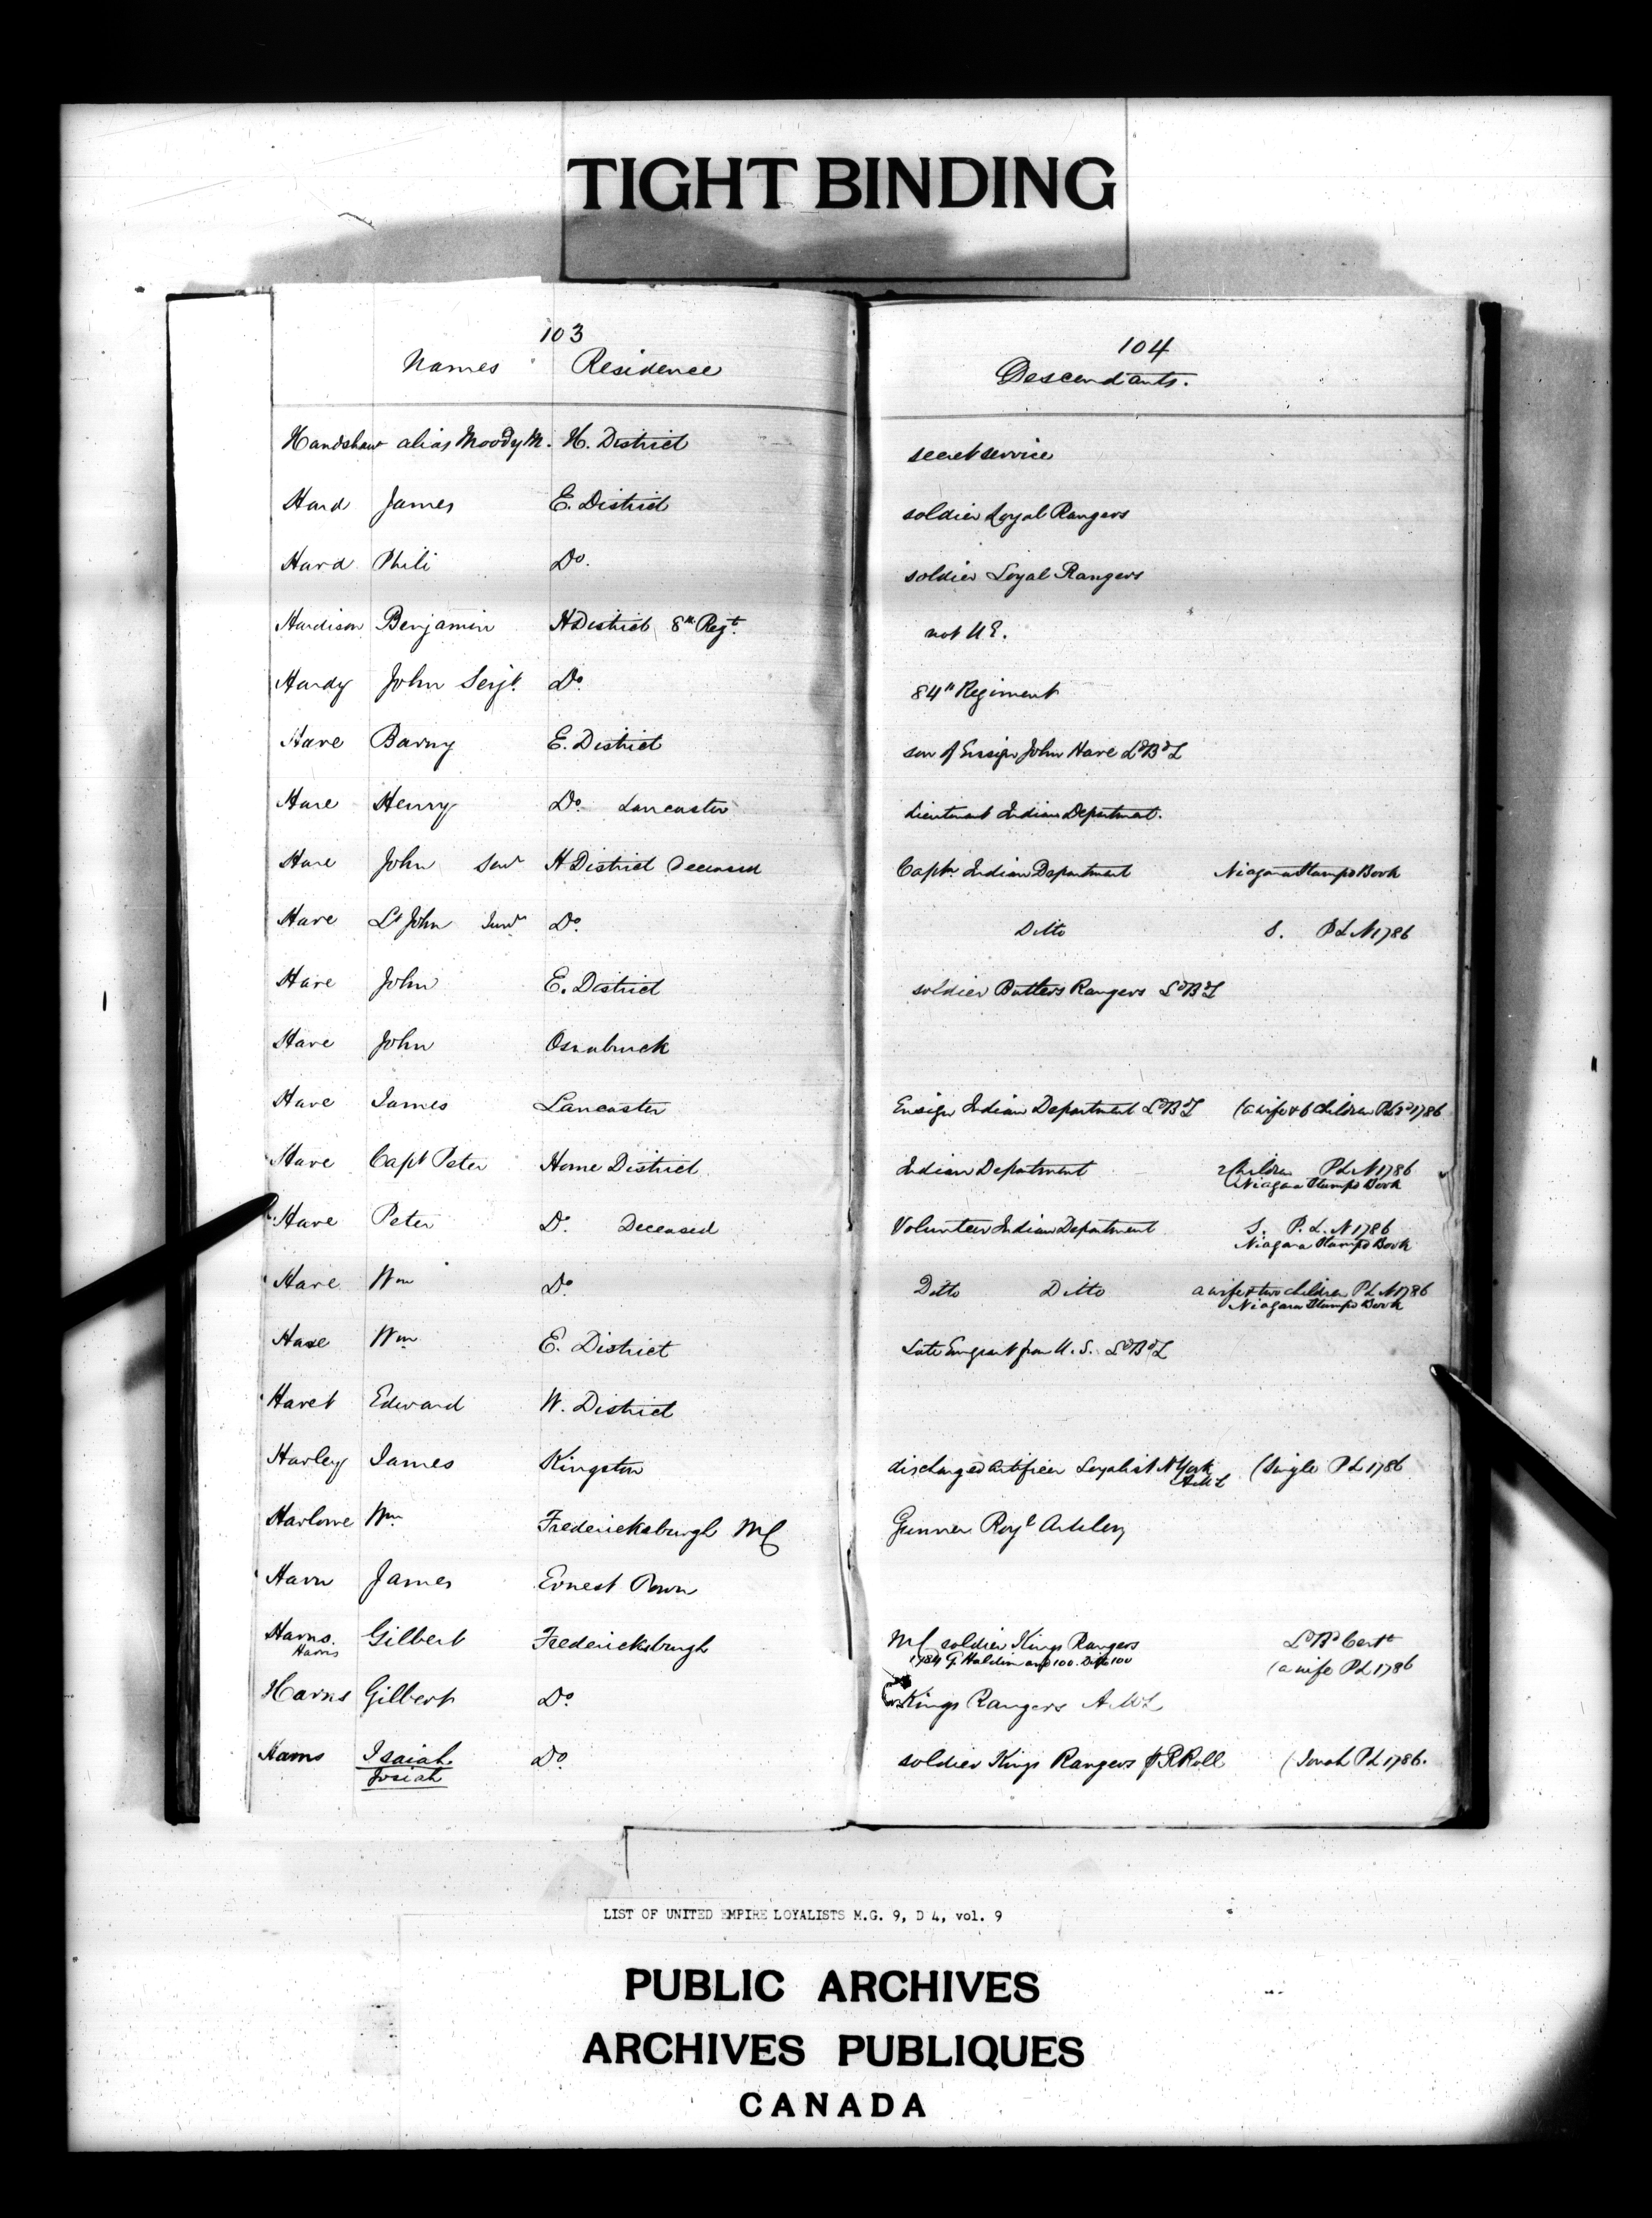 TIGHT BINDING
103
Names Residence
104
Descendants.
Handshaw alias Moody M. H. District secret service
Hard James E. District soldier Loyal Rangers
Hard Phili Do. soldier Loyal Rangers
Hardison Benjamin H District 8th Regt. not U E.
Hardy John Serjt. Do 84th Regiment
Hare Barny E. District son of Ensign John Hare LdBdL
Hare Henry Do. Lancaster Lieutenant Indian Department.
Hare John Senr H District Deceased Captn Indian Department Niagara Stampd Book
Hare Lt John Junr Do. Ditto S. P L N 1786
Hare John E. District soldier Butlers Rangers LdBdL
Hare John Osnabruck
Hare James Lancaster Ensign Indian Department LdBdL (a wife & 6 children PL 1786
Hare Capt Peter Home District Indian Department 2 Children P L N 1786
Niagara Stampd Book
Hare Peter Do. Deceased Volunteer Indian Department S. P. L. N 1786
Niagara Stampd Book
Hare Wm Do. Ditto Ditto a wife & two children P L N 1786
Niagara Stampd Book
Hare Wm E. District Late Emigrant from U. S. LdBdL
Haret Edward W. District
Harley James Kingston discharged Artificer Loyalist N York (Single P L 1786
Harlowe Wm. Fredericksburgh MC Gunner Royl Artilery
Harn James Ernest Town
Harns. Gilbert Fredericksburgh MC soldier Kings Rangers LdBd Certe
Harris 1784 (a wife P L 1786
Harns Gilbert Do Kings Rangers
Harns Isaiah Do. soldier Kings Rangers P R Roll (Josiah P L 1786.
Josiah
LIST OF UNITED EMPIRE LOYALISTS M.G. 9, D 4, vol. 9
PUBLIC ARCHIVES
ARCHIVES PUBLIQUES
CANADA